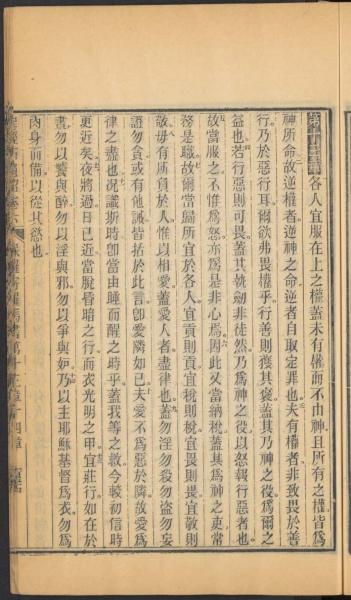 第十三章各人宜服在上之權蓋未有權而不由神且所有之權皆爲
神所命故逆權者逆神之命逆者自取定罪也夫有權者非致畏於善
行乃於惡行耳爾欲弗畏權乎行善則獲其褒蓋其乃神之役爲爾之
益也若行惡則可畏蓋其執劍非徒然乃爲神之役以怒報行惡者也
故當服之不惟爲怒亦爲是非心焉因此又當納稅蓋其爲神之吏常
務是職故爾當歸所宜於各人宜貢則貢宜稅則稅宜畏則畏宜敬則
敬毋有所負於人惟以相愛蓋愛人者盡律也蓋勿淫勿殺勿盜勿妄
證勿貪或有他誡皆括於此言卽愛隣如己夫愛不爲惡於隣故愛爲
律之盡也況識斯時卽當由睡而醒之時乎蓋我等之救今較初信時
更近矣夜將過日已近當脫昏暗之行而衣光明之甲宜莊行如在於
晝勿以饕與醉勿以淫與邪勿以爭與妬乃以主耶穌基督爲衣勿爲
肉身前備以從其慾也